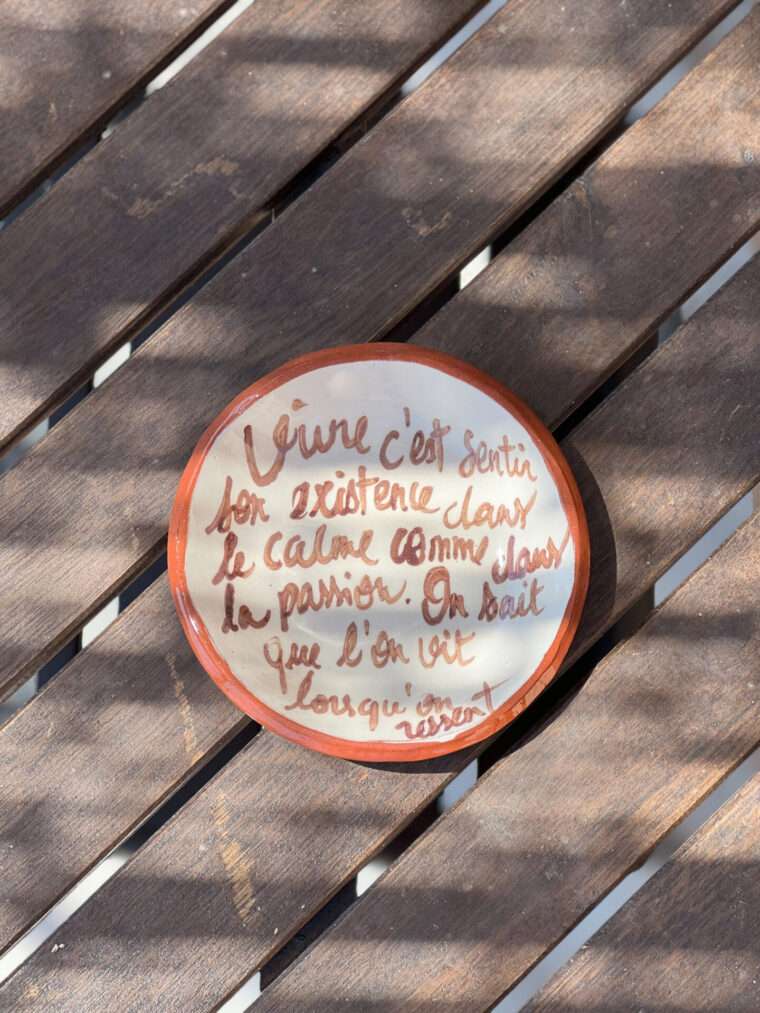 Vivre c'est sentir
son existence dans
le calme comme dans
la passion. On sait
que l'on vit
lorsqu'on
ressent